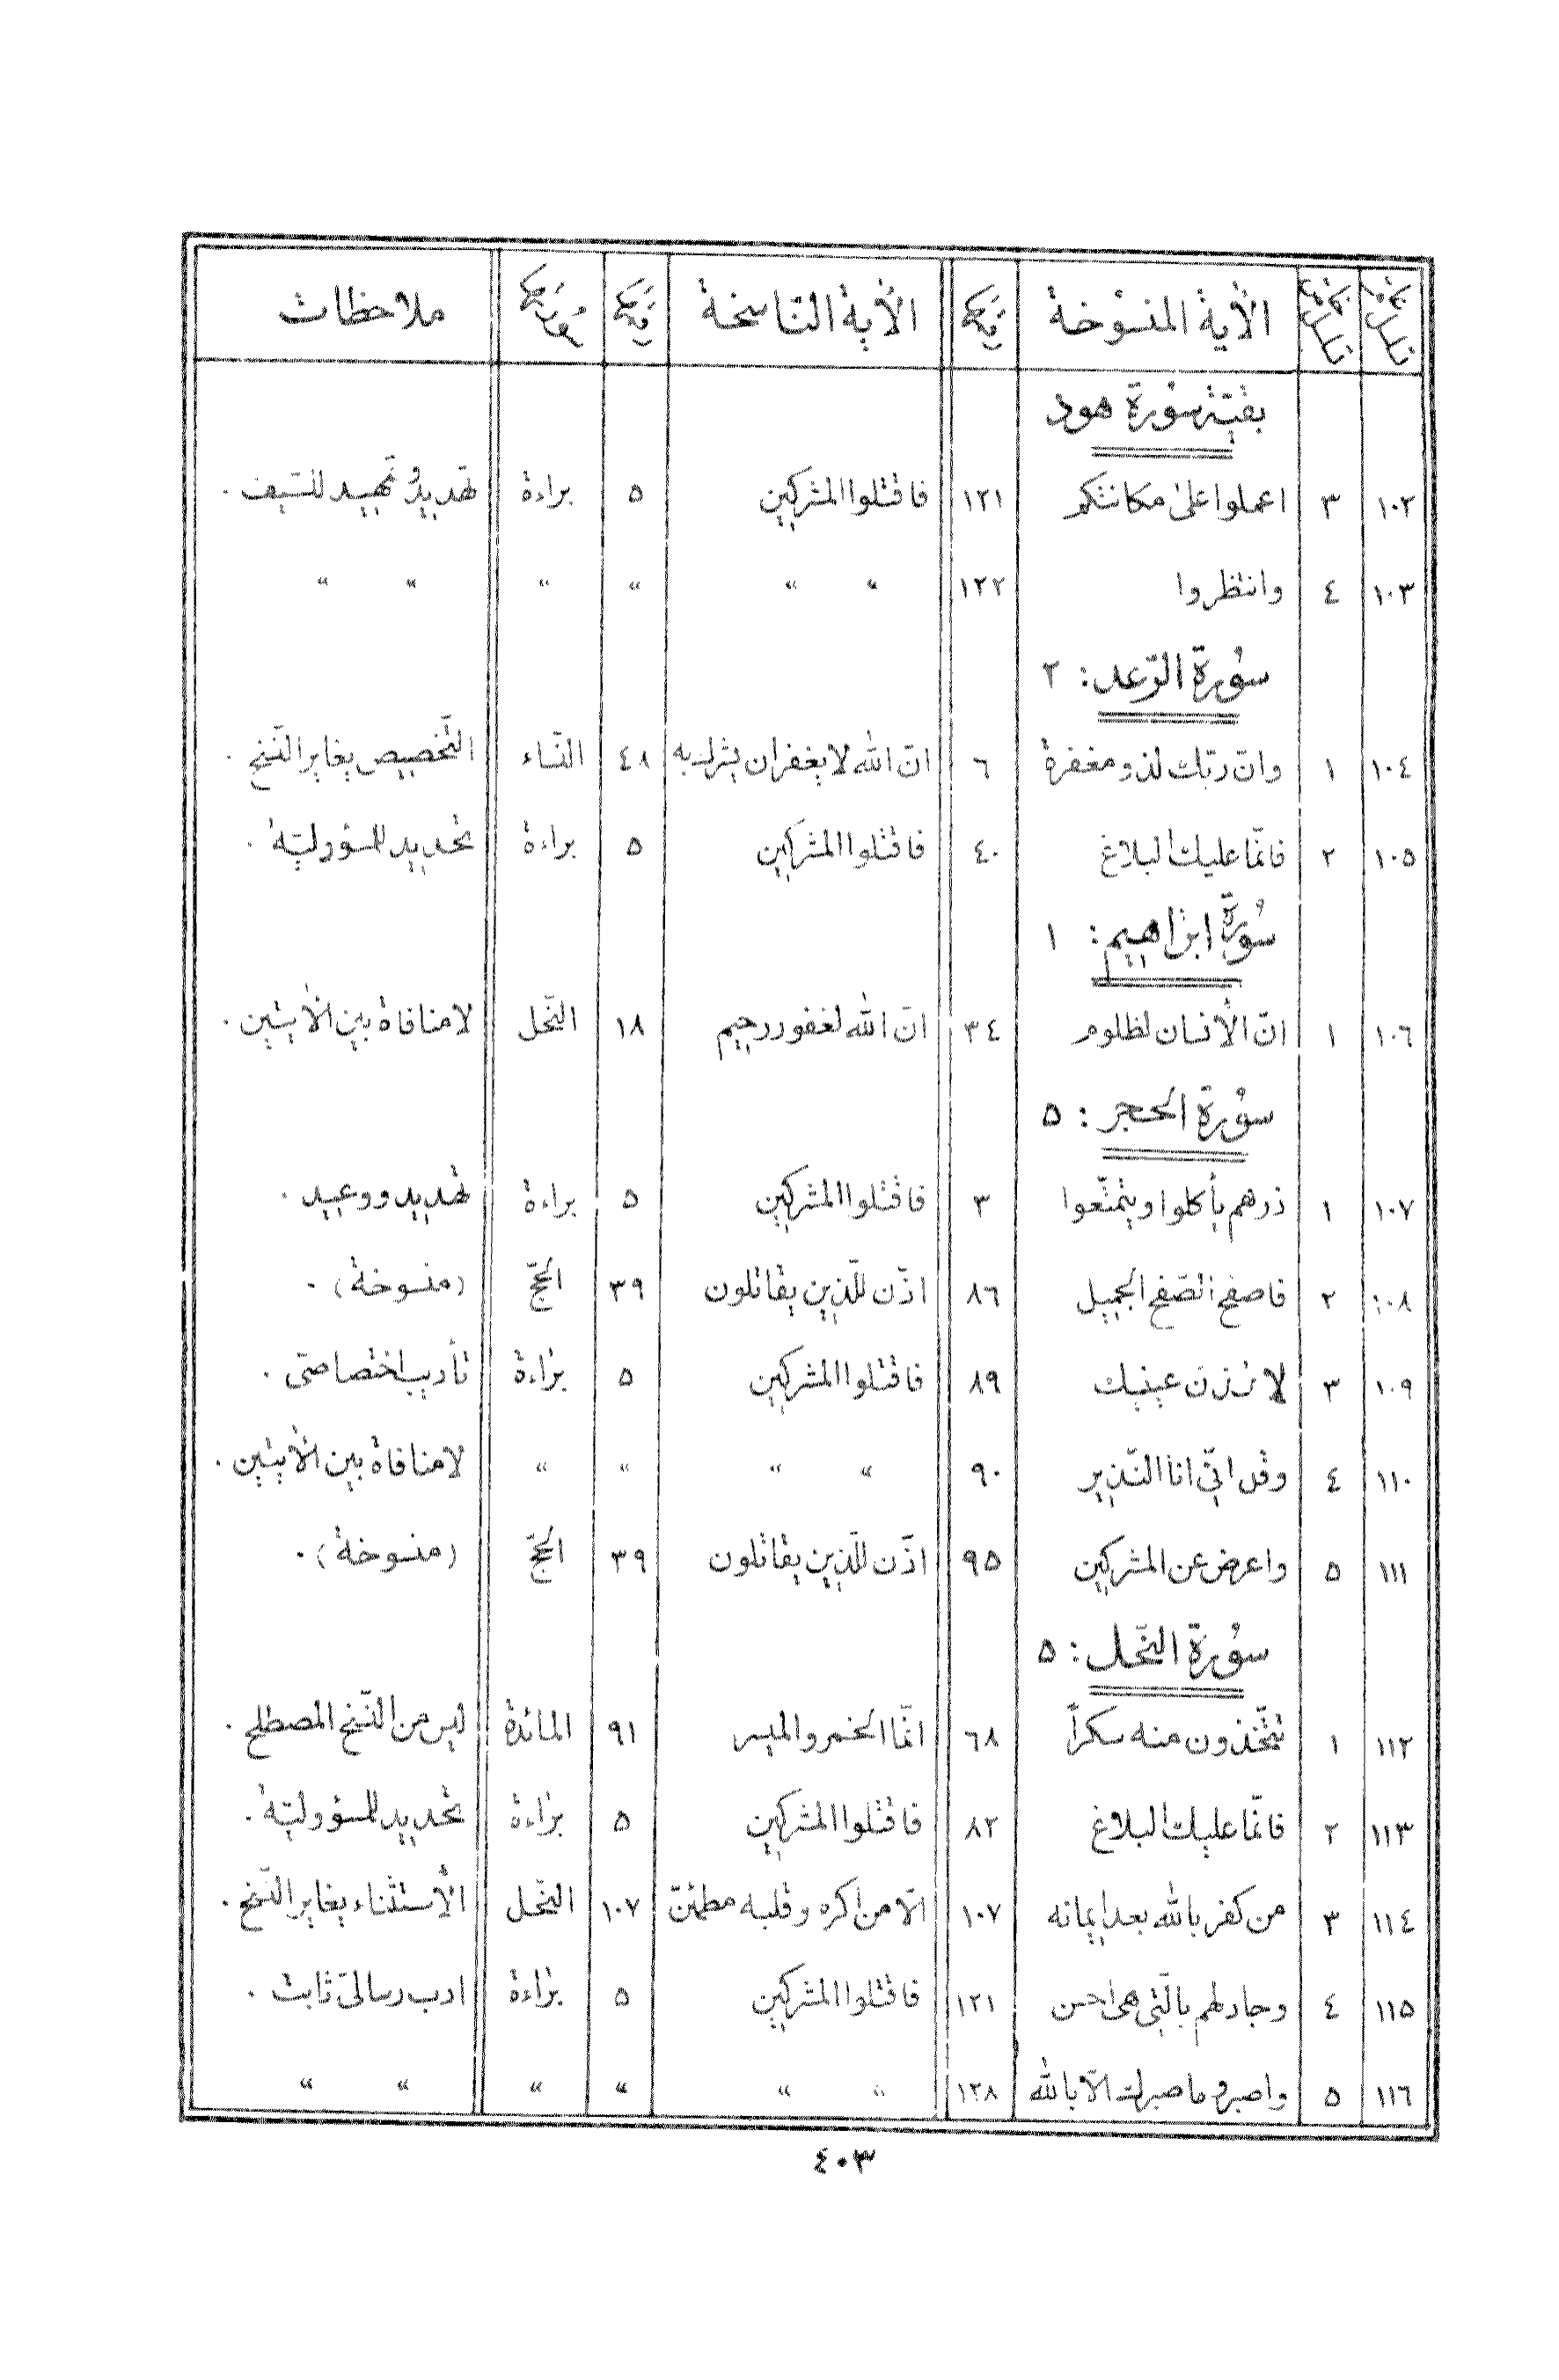 الآية المنسوخة رقمها الآية الناسخة رقمها سورتها ملاحظات
بقيّة سورة هود
١٠٢ ٣ اعملوا على مكانتكم ١٢١ فاقتلوا المشركين ٥ براءة تهديد وتمهيد للسّيف .
١٠٣ ٤ وانتظروا ١٢٢ " " " " " "
سورة الرّعد : ٢
١٠٤ ١ وانّ ربّك لذو مغفرة ٦ انّ الله لا يغفر ان يشرك به ٤٨ النّساء التّخصيص يغاير النّسخ .
١٠٥ ٢ فانّما عليك البلاغ ٤٠ فاقتلوا المشركين ٥ براءة تحديد للمسؤوليّة .
سورة ابراهيم : ١
١٠٦ ١ انّ الأنسان لظلوم ٣٤ انّ الله لغفور رحيم ١٨ النّحل لا منافاة بين الأيتين .
سورة الحجر : ٥
١٠٧ ١ ذرهم يأكلوا ويتمتّعوا ٣ فاقتلوا المشركين ٥ براءة تهديد ووعيد .
١٠٨ ٢ فاصفح الصّفح الجميل ٨٦ اذّن للّذين يقاتلون ٣٩ الحجّ (منسوخة) .
١٠٩ ٣ عينيك ٨٩ فاقتلوا المشركين ٥ براءة تأديب اختصاصيّ .
١١٠ ٤ وقل انّي انا النّذير ٩٠ " " " " لا منافاة بين الأيتين .
١١١ ٥ واعرض عن المشركين ٩٥ اذّن للّذين يقاتلون ٣٩ الحجّ (منسوخة) .
سورة النّحل : ٥
١١٢ ١ تتّخذون منه سكراً ٦٨ انّما الخمر والميسر ٩١ المائدة ليس من النّسخ المصطلح .
١١٣ ٢ فانّما عليك البلاغ ٨٢ فاقتلوا المشركين ٥ براءة تحديد للمسؤوليّة .
١١٤ ٣ من كفر بالله بعد ايمانه ١٠٧ الّا من اكره وقلبه مطمئنّ ١٠٧ النّحل الأستثناء يغاير النّسخ .
١١٥ ٤ وجادلهم بالّتي هي احسن ١٢١ فاقتلوا المشركين ٥ براءة ادب رساليّ ثابت .
١١٦ ٥ واصبر وما صبرك الّا بالله ١٢٨ " " " " " "
٤٠٣